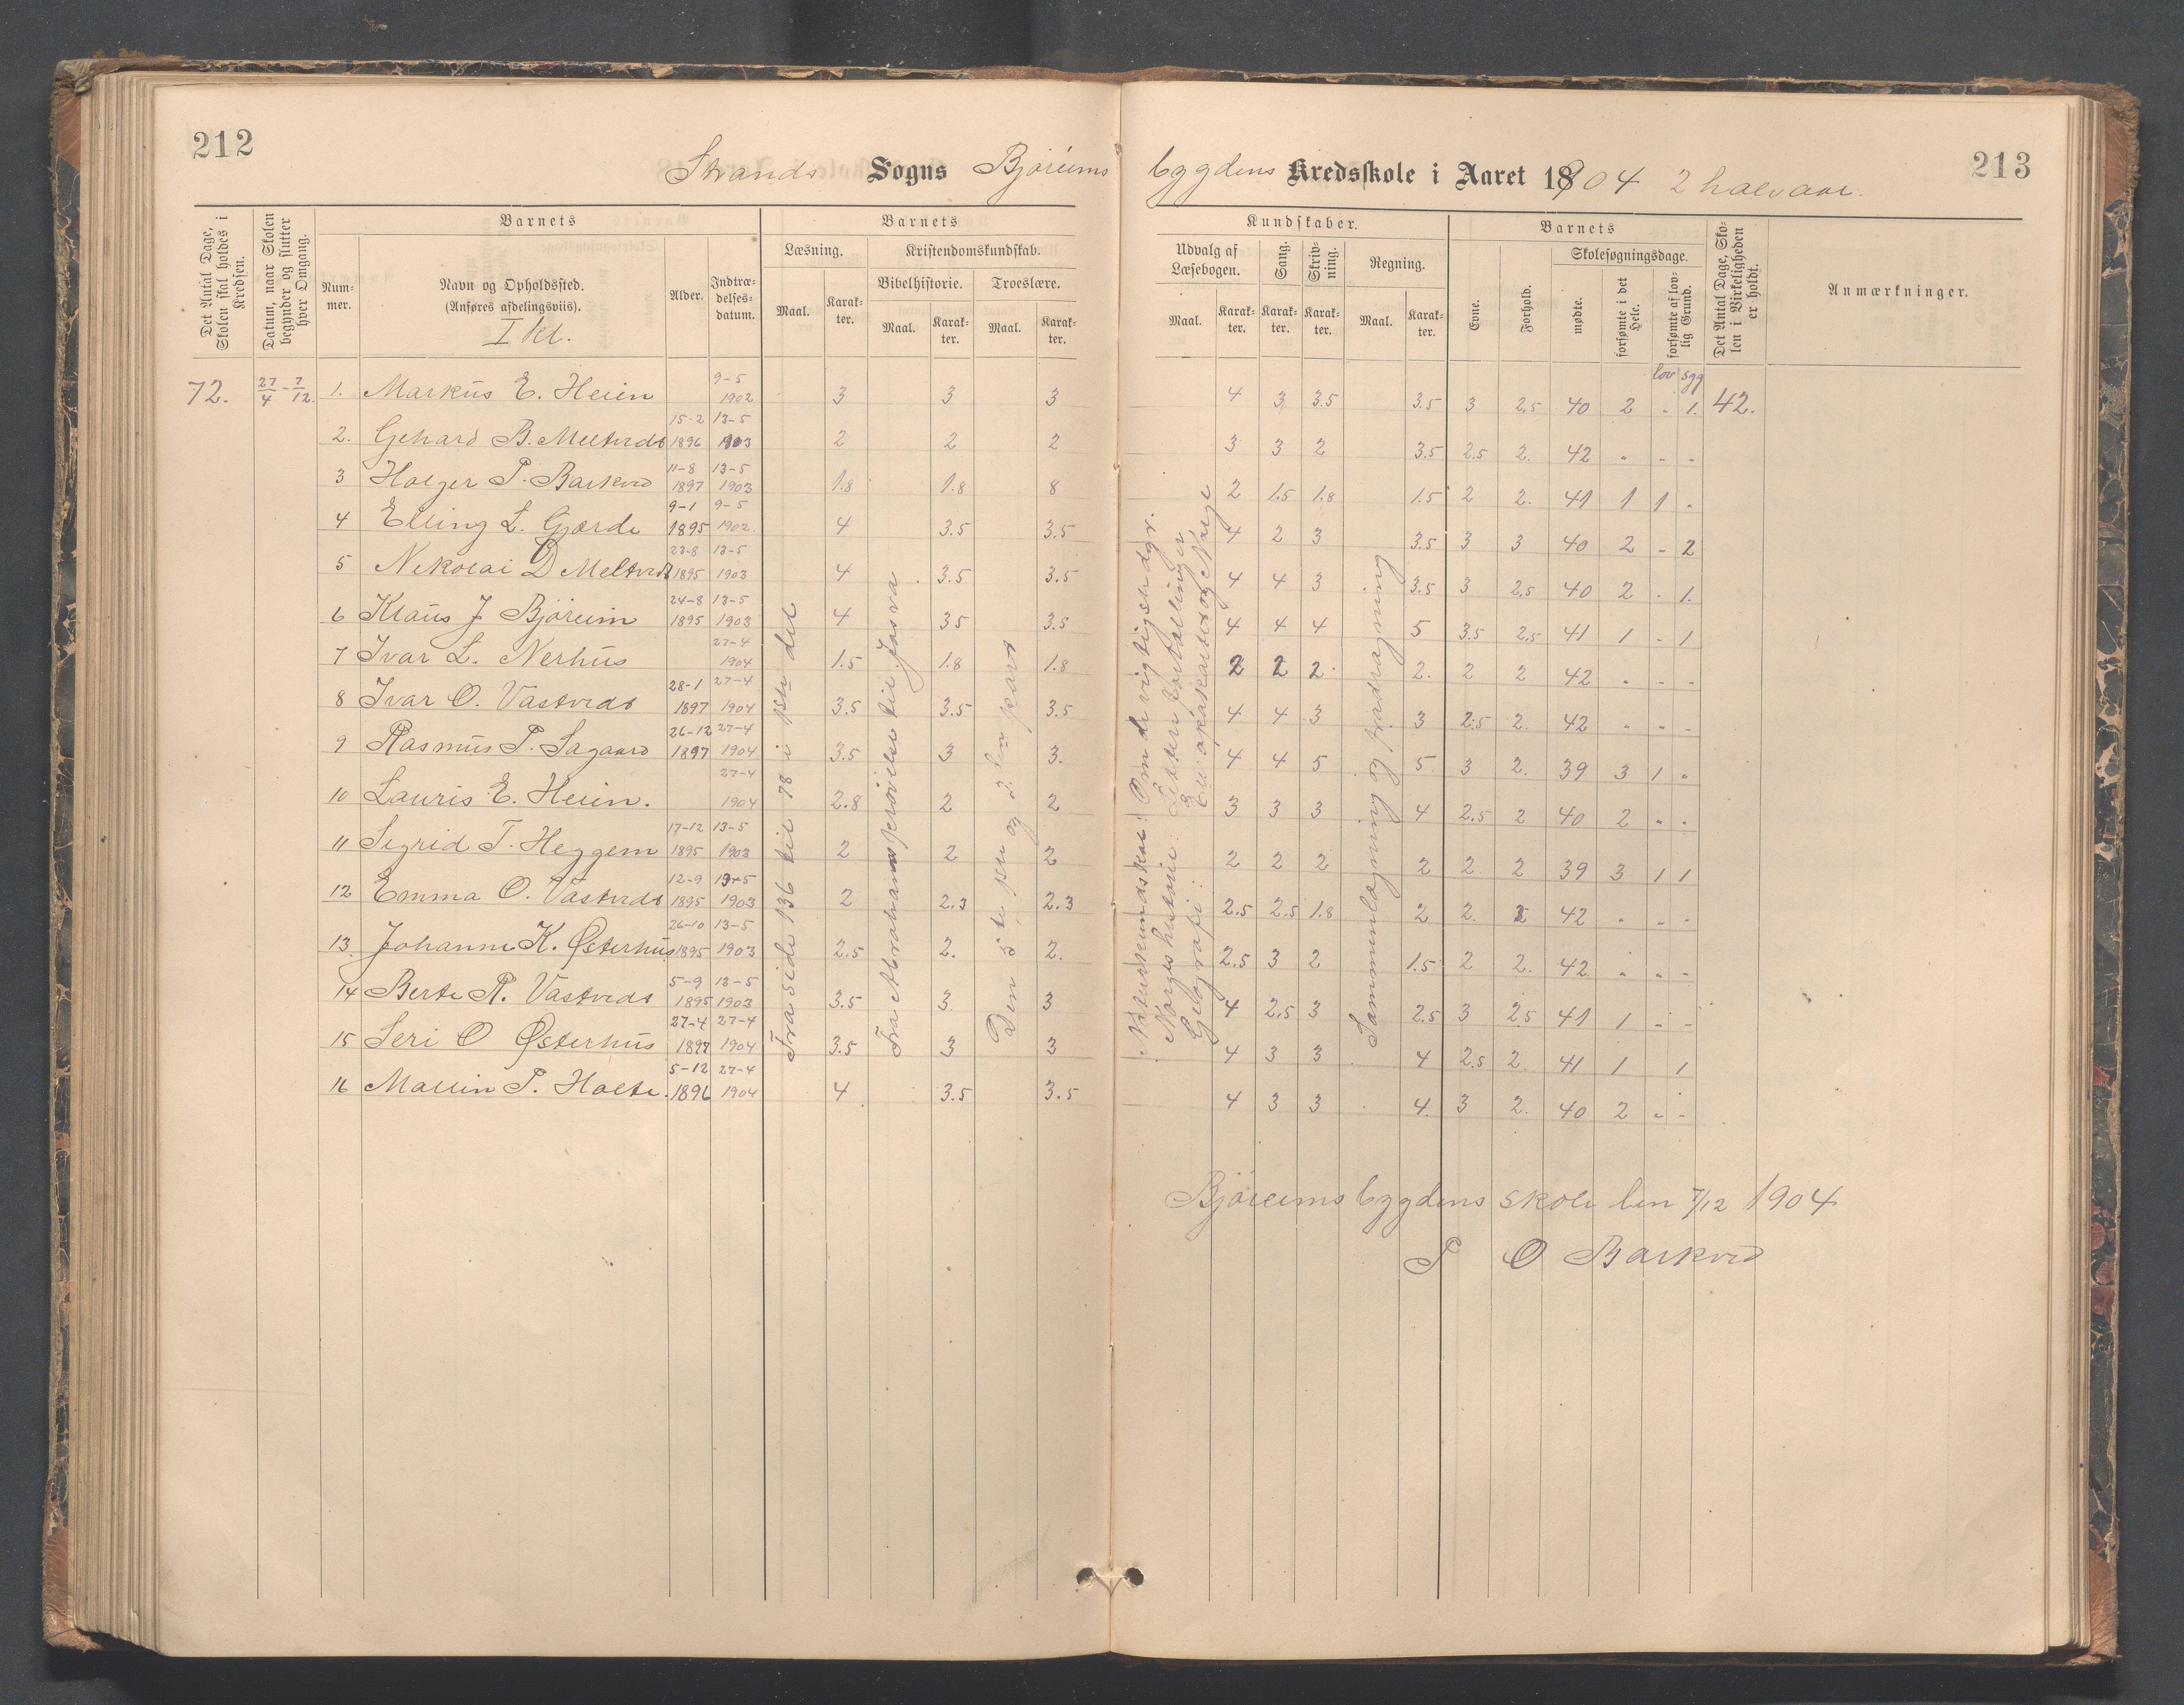 212
Strands Sogns Bjøreims
Det Antal Dage, Skolen skal holdes i Kredsen.
Datum, naar Skolen begynder og slutter hver Omgang.
Barnets
Nummer.
Navn og Opholdssted.
(Anføres afdelingsviis).
I kl.
Alder.
Indtrædelsesdatum.
Barnets
Læsning.
Kristendomskundskab.
Bibelhistorie. Troeslære.
Maal. Karakter. Maal. Karakter. Maal. Karakter.
72. 27/4 - 7/12.
1. Markus E. Heien 9-5 1902 3 3 3
2. Gehard B. Meltveds 15-2 1896 13-5 1903 2 2 2
3 Holger P. Barkved 11-8 1897 13-5 1903 1.8 1.8 8
4 Elling L. Gjærde 9-1 1895 9-5 1902. 4 3.5 3.5
5 Nekolai D Meltveds 23-8 1895 13-5 1903 4 3.5 3.5
6 Klaus J Bjøreim 24-8 1895 13-5 1903 4 3.5 3.5
7 Ivar L. Nerhus 27-4 1904 1.5 1.8 1.8
8 Ivar O. Vastveds 28-1 1897 27-4 1904 3.5 3.5 3.5
9 Rasmus P. Sagaard 26-12 1897 27-4 1904 3.5 3 3.
10 Lauris E. Heien. 27-4 1904 2.8 2 2
11 Sigrid T. Heggem 17-12 1895 13-5 1903 2 2 2
12 Emma O. Vastveds 12-9 1895 13-5 1903 2 2.3 2.3
13. Johanne K. Østerhus 26-10 1895 13-5 1903 2.5 2. 2.
14 Berte R. Vastveds 5-9 1895 13-5 1903 3.5 3 3
15 Seri O Østerhus 27-4 1897 27-4 1904 3.5 3 3
16 Mallin P. Holte. 5-12 1896 27-4 1904 4 3.5 3.5
Fra side 136 til 78 i 3die del
Fra Abrahams prøvelse til Josva
Den 5te, og 2den part
bygdens Kredsskole i Aaret 1904 2 halvaar.
213
Kundskaber.
Udvalg af Læsebogen.
Maal. Karakter.
Sang. Karakter.
Skrivning. Karakter.
Regning.
Maal. Karakter.
Barnets
Evne.
Forhold.
Skolesøgningsdage.
mødte.
forsømte i det Hele.
forsømte af lovlig Grund.
Det Antal Dage, Skolen i Virkeligheden er holdt.
Anmærkninger.
lov syg
4 3 3.5 3.5 3 2.5 40 2 - 1. 42.
3 3 2 3.5 2.5 2. 42 - - -
2 1.5 1.8 1.5 2 2. 41 1 1 -
4 2 3 3.5 3 3 40 2 - 2
4 4 3 3.5 3 2.5 40 2 - 1.
4 4 4 5 3.5 2.5 41 1 - 1
2 2 2. 2. 2 2 42 - - -
4 4 3 3 2.5 2. 42 - - -
4 4 5 5 3 2. 39 3 1 -
3 3 3 4 2.5 2 40 2 - -
2 2 2 2 2 2 39 3 1 1
2.5 2.5 1.8 2 2. 2 42 - - -
2.5 3 2 1.5 2 2. 42 - - -
4 2.5 3 2.5 3 2.5 41 1 - -
4 3 3 4 2.5 2. 41 1 1
4 3 3 4. 3 2. 40 2 - -
Naturkundskab: Om de vigtigste dyr.
Norges historie: fortællinger
Geografi: Europakartet og Norge
Sammenlægning og fradragning
Bjøreimsbygdens skole den 7/12 1904
P O Barkved